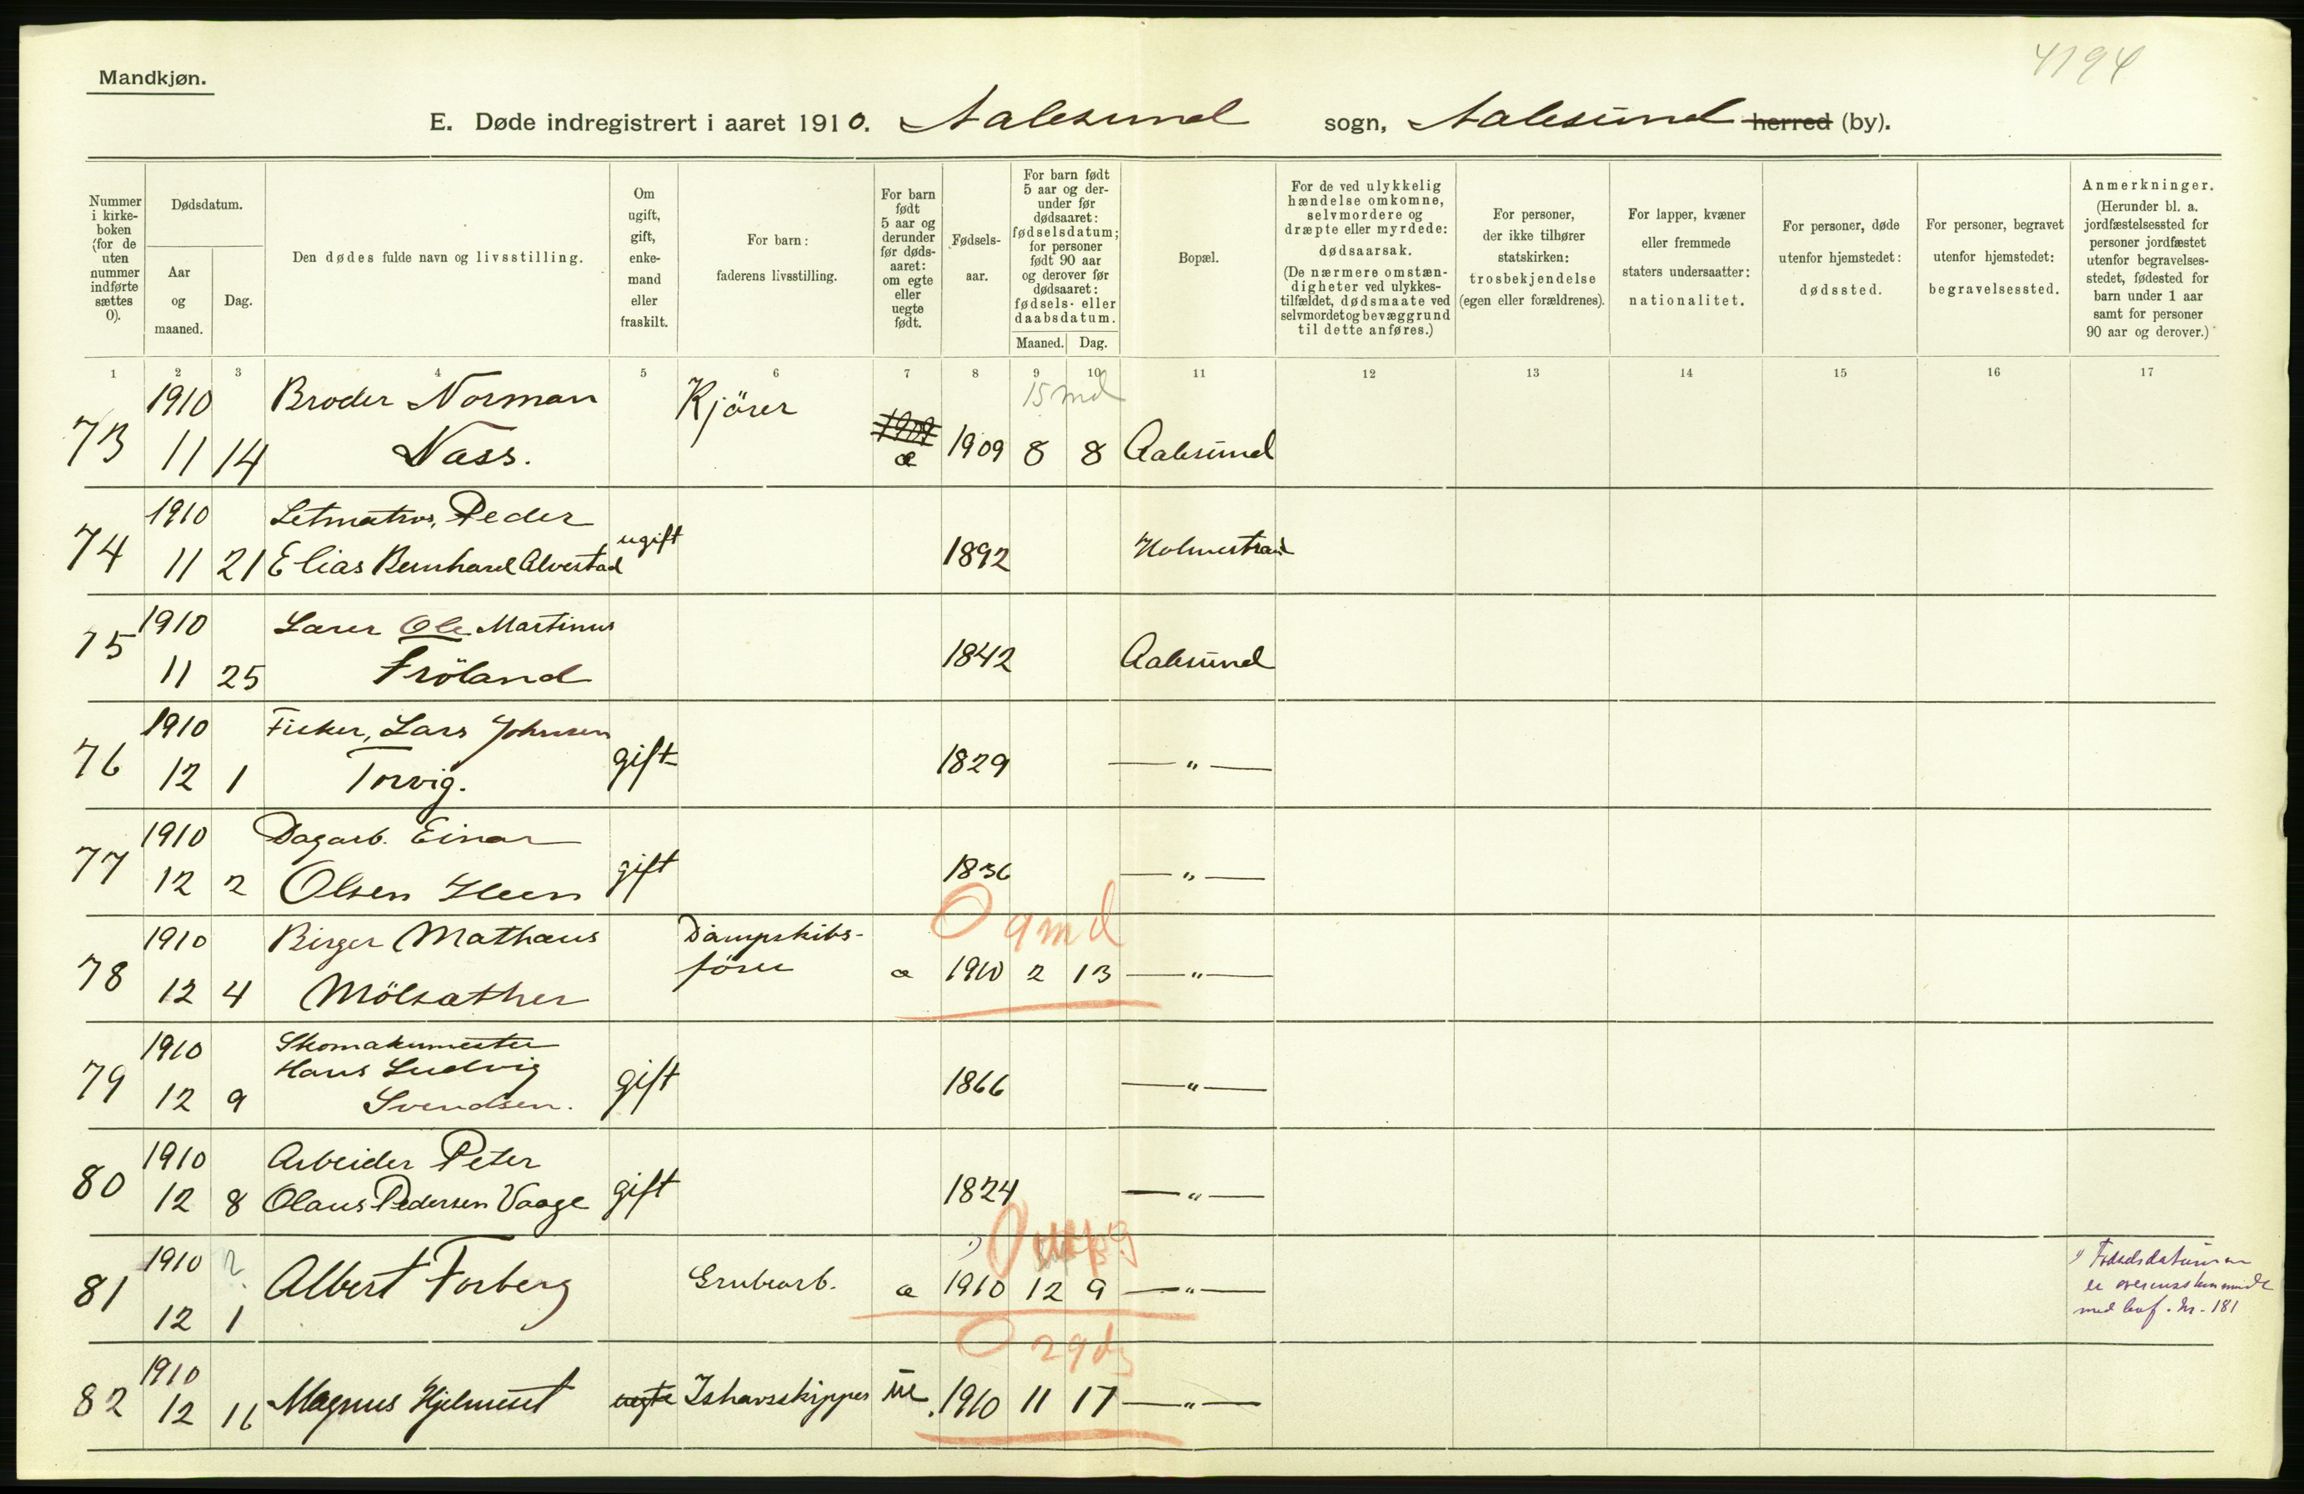 4194
Mandkjøn.
E. Døde indregistrert i aaret 1910. Aalesund sogn, Aalesund herred (by).
Nummer i kirkeboken (for de uten nummer indførte sættes 0).
Dødsdatum.
Aar og maaned.
Dag.
Den dødes fulde navn og livsstilling.
Om ugift, gift, enkemand eller fraskilt.
For barn: faderens livsstilling.
For barn født 5 aar og derunder før dødsaaret: om egte eller uegte født.
Fødselsaar.
For barn født 5 aar og derunder før dødsaaret: fødselsdatum; for personer født 90 aar og derover før dødsaaret: fødsels- eller daabsdatum.
Maaned. Dag.
Bopæl.
For de ved ulykkelig hændelse omkomne, selvmordere og dræpte eller myrdede: dødsaarsak. (De nærmere omstændigheter ved ulykkestilfældet, dødsmaate ved selvmordet og bevæggrund til dette anføres.)
For personer, der ikke tilhører statskirken: trosbekjendelse (egen eller forældrenes).
For lapper, kvæner eller fremmede staters undersaatter: nationalitet.
For personer, døde utenfor hjemstedet: dødssted.
For personer, begravet utenfor hjemstedet: begravelsessted.
Anmerkninger. (Herunder bl. a. jordfæstelsessted for personer jordfæstet utenfor begravelsesstedet, fødested for barn under 1 aar samt for personer 90 aar og derover.)
1 2 3 4 5 6 7 8 9 10 11 12 13 14 15 16 17
1910 Broder Norman Kjörer 1909 15 md
73 11 14 Nass. æ 1909 8 8 Aalesund
1910 Letmatros, Peder
74 11 21 Elias Bernhard Alvestad ugift 1892 Holmestrand
1910 Lærer Ole Martinus
75 11 25 Fröland 1842 Aalesund
1910 Fisker, Lars Johnsen
76 12 1 Torvig. gift 1829 — " —
1910 Dagarb. Einar
77 12 2 Olsen Heen gift 1836 — " —
0 9 md
1910 Birger Mathæus Dampskibs-
78 12 4 Mölsæther förer æ 1910 2 13 — " —
1910 Skomakermester
79 Hans Ludvig gift 1866 — " —
12 9 Svendsen.
1910 Arbeider Peter
80 12 8 Olaus Pedersen Vaage gift 1824 — " —
1910 ? 0
81 12 1 Albert Forberg Grubearb. æ 1910 12 9 — " —
1) Fødselsdatum
er overensstemmende
med lev f. Nr. 181
0 29 dg
1910
82 12 16 Magnus Hjelmeset uegte Ishavsskipper ue 1910 11 17 — " —